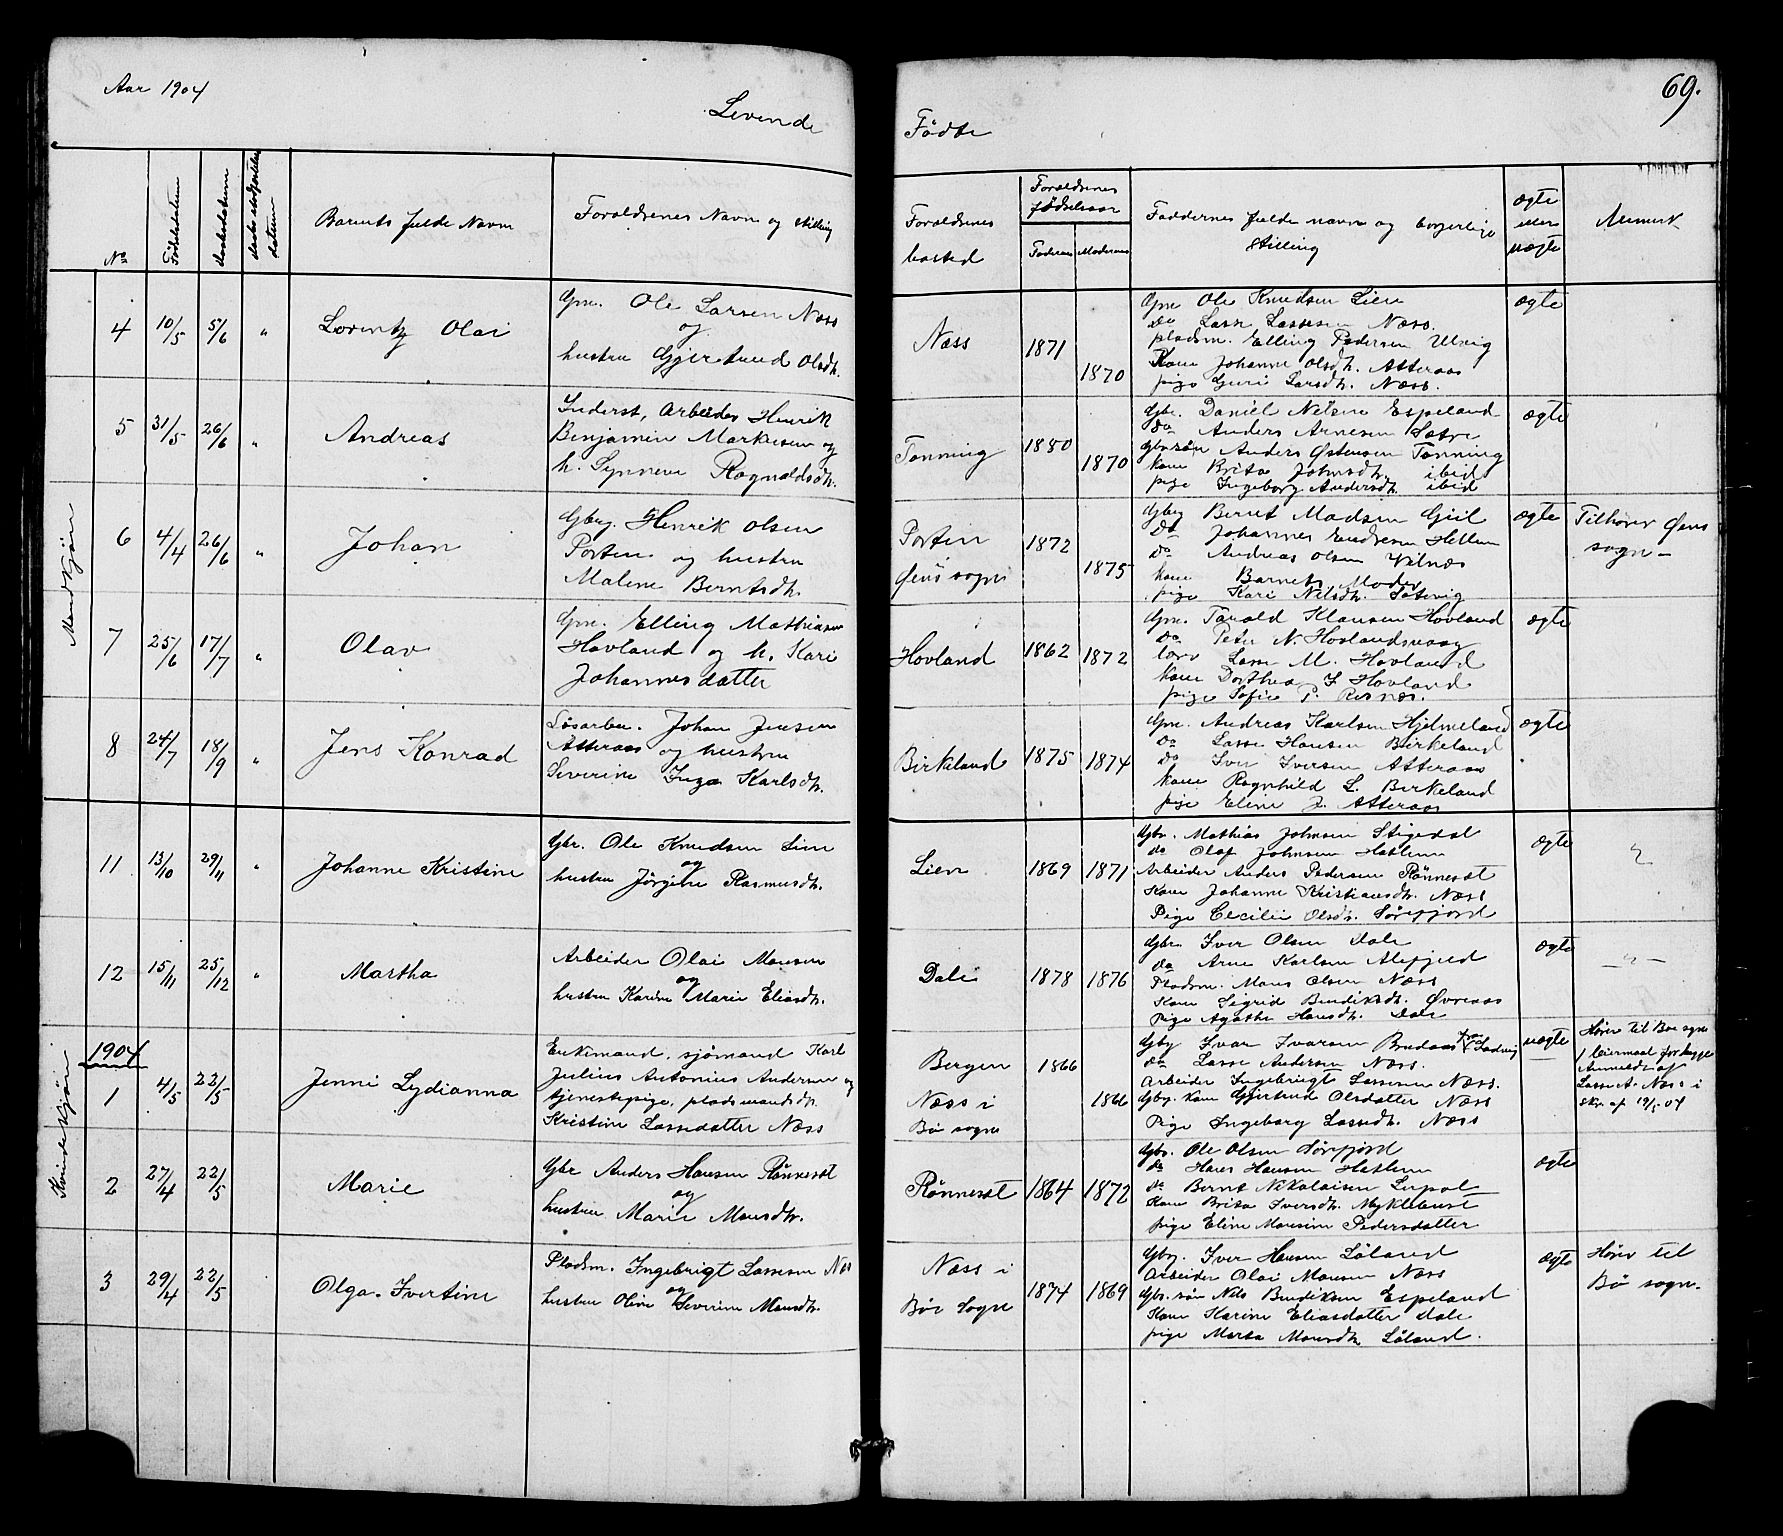 Aar 1904
Levende
Fødte
69.
No
Fødselsdatum
Daabsdatum
Barnets fulde Navn
Forældrenes Navn og stilling
Forældrenes
bosted
Forældrenes
fødselsaar
Faderens
Moderens
Faddernes fulde navn og borgerlige
stilling
ægte
eller
uægte
Anmerk
Mandkjøn
4
10/5
5/6
"
Lorentz Olai
Gm. Ole Larsen Næss
og
hustru Gjertrud Olsdtr.
Næss
1871
1870
Gm Ole Knudsen Lien
do Lasse Lassesen Næss.
pladsm. Elling Pedersen Ulvig
Kone Johanne Olsdtr. Atteraas
pige Guri Larsdtr. Næss.
ægte
5
31/5
26/6
"
Andreas
Inderst, Arbeider Henrik
Benjamin Markusen og
h. Synneve Rognaldsdtr.
Tonning
1880
1870
Gbr. Daniel Nilsen Espeland
do Anders Arnesen Sætre
gbrsøn Anders Østensen Tonning
kone Brita Johnsdtr. ibid
pige Ingeborg Andersdtr. ibid
ægte
6
4/4
26/6
"
Johan
Gbrg. Henrik Olsen
Porten og hustru
Malene Berntsdtr.
Porten
Øens sogn
1872
1875
Gbrg Bernt Madsen Giil
do Johannes Endresen Hetlem
do Andreas Olsen Vilnæs
kone Barnets Moder
pige Kari Nilsdtr. Sætevig
ægte
Tilhører Øens
sogn -
7
25/6
17/7
"
Olav
Gm. Elling Mathiasen
Hovland og h. Kari
Johannesdatter
Hovland
1862
1872
Gm. Tarald Klausen Hovland
do Peter N. Hovlandsvaag
lærer Lasse M. Hovland
kone Dorthea I Hovland
pige Sofie P. Risnæs.
ægte
8
24/7
18/9
"
Jens Konrad
Løsarbei. Johan Jensen
Atteraas og hustru
Severine Inga Karlsdtr.
Birkeland
1875
1874
Gm. Andreas Karlsen Hjelmeland
do Lasse Hansen Birkeland
do Iver Iversen Atteraas
kone Rognhild L. Birkeland
pige Eline J. Atteraas
ægte
11
13/10
29/11
"
Johanne Kristine
Gbr. Ole Knudsen Lien
og
hustru Jørgine Rasmusdtr.
Lien
1869
1871
Gbr. Mathias Johnsen Stigedal
do Olaf Johnsen Hatlem
Arbeider Anders Pedersen Rønneset
Kone Johanne Kristiansdtr. Næss
Pige Cecilie Olsdtr. Sørefjord
ægte
"
12
15/11
25/12
"
Martha
Arbeider Olai Monsen
og
hustru Karine Marie Eliasdtr.
Dale
1878
1876
Gbr. Iver Olsen Dale
do Arne Karlsen Alefjeld
Pladsm. Mons Olsen Næss
Kone Sigrid Bendiksdtr. Øvreaas
Pige Agathe Hansdtr. Dale
ægte
- " -
Kvindekjøn
1904
1
4/5
22/5
Jenni Lydianna
Enkemand, sjømand Karl
Julius Antonius Andersen og
tjenestepige, pladsmandsdtr.
Kristine Lassedatter Næss
Bergen
Næss i
Bø sogn
1866
1866
Gbg Ivar Ivarsen
do Lasse Andersen Næss.
Arbeider Ingebrigt Lassesen Næss.
Gbg. kone Gjertrud Olsdatter Næss
Pige Ingeborg Lassedtr. Næss
uægte
Hører til Bø sogn
1 leiermaal for begge
Anmeldt af
Lasse A. Næss i
skr. af 19/5 04
2
27/4
22/5
Marie
Gbr Anders Hansen Rønneset
og
hustru Marie Monsdtr.
Rønneset
1864
1872
Gbr. Ole Olsen Sørefjord
do Hans Hansen Hatlem
do Bernt Nikolaisen
Kone Brita Iversdtr. Myklebust
pige Eline Monsine Pedersdatter
ægte
3
29/4
22/5
Olga Ivertine
Pladsm. Ingebrigt Lassesen Næs
og
hustru Oline Severine Monsdtr.
Næss i
Bø Sogn
1874
1869
Gbg. Iver Hansen Løland
Arbeider Olai Monsen Næss
Gbr. søn Nils Bendiksen Espeland
Kone Karine Eliasdatter Dale
pige Marta Monsdtr Løland.
ægte
Hører til
Bø sogn.